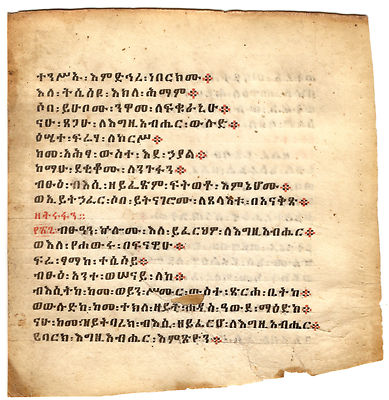 ተንሥኡ፡እምድኅረ፡ነበርክሙ፨
እለ፡ትሴሰዩ፡እክለ፡ሕማም፨
ሶበ፡ይሁቦሙ፡ንዋመ፡ለፍቁራኒሁ፨
ናሁ፡ጸጋሁ፡ለእግዚአብሔር፡ውሉድ፨
ዕሤተ፡ፍሬሃ፡ለከርሥ፨
ከመ፡አሕፃ፡ውስተ፡እደ፡ኃያል፨
ከማሁ፡ደቂቆሙ፡ለንጉፋን፨
ብፁዕ፡ብእሲ፡ዘይፌጽም፡ፍትወቶ፡እምኔሆሙ፨
ወኢይትኃፈር፡ሶበ፡ይትናገሮሙ፡ለጸላእቱ፡በአናቅጽ፨
ብፁዓን፡ኵሎሙ፡እለ፡ይፈርህዎ፡ለእግዚአብሔር፨
ወእለ፡የሐውሩ፡በፍናዊሁ፨
ፍሬ፡ፃማከ፡ተሴሰይ፨
ብፁዕ፡አንተ፡ወሠናይ፡ለከ፨
ብእሲትከ፡ከመ፡ወይን፡ሥሙር፡ውስተ፡ጽርሐ፡ቤትከ፨
ወውሉድከ፡ከመ፡ተክለ፡ዘይት፡ሐዲስ፡ዓውደ፡ማዕድከ፨
ናሁ፡ከመዝ፡ይትባረክ፡ብእሲ፡ዘይፈርሆ፡ለእግዚአብሔር፨
ይባርክ፡እግዚአብሔር፡እምጽዮን፨